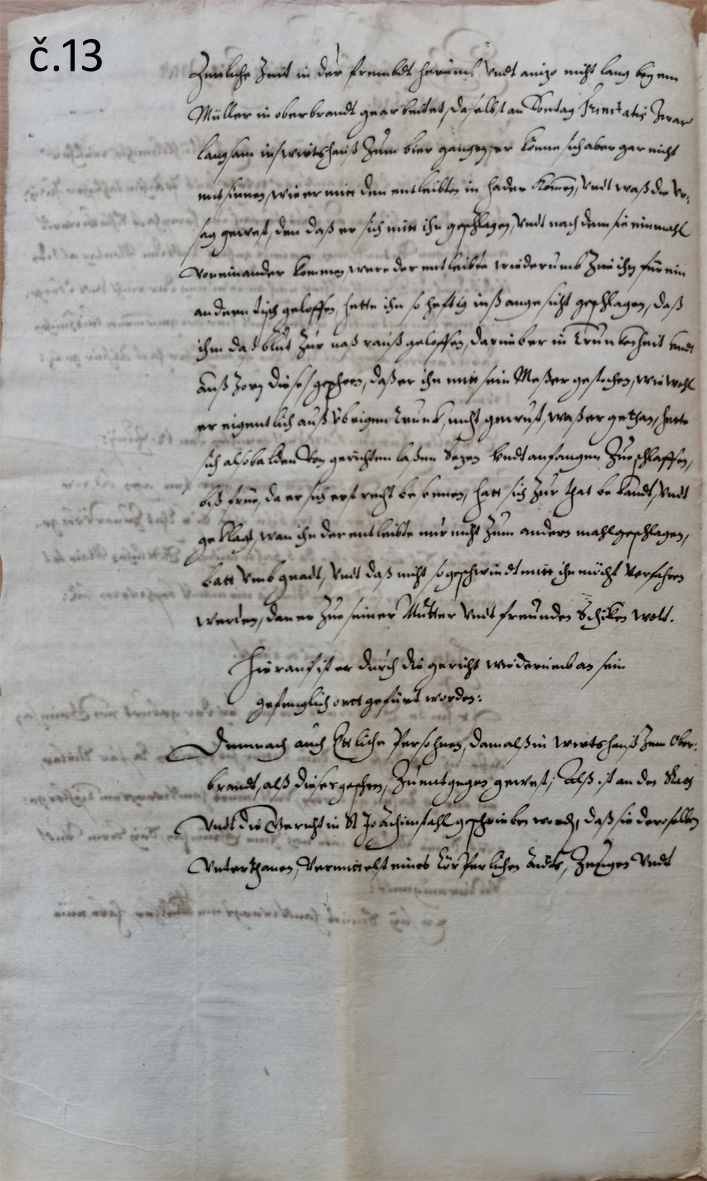 č.13
Zimliche Zeit in der frembdt herumb, Vndt anizo nicht lang bey em
Müller in oberbrandt gearbeitet, daselbst am Sontag Trinitatis Zwar
langsam ins wirtshauß Zum bier gangen, er könne sich aber gar nicht
entsinnen, wie er mitt den entleibten in hader kommen, Vndt waß die Vr-
sag gewest, den daß er sich mitt ihn geschlagen, Vndt nach dem sie einmahl
Voneinander kommen, were der entleibte wiederumb Zue ihn für ein
andern tisch geloffen, hette ihn so heftig inß angesicht geschlagen, daß
ihm daß blut Zur naß rauß geloffen, darüber in Trunkenheit Vndt
auß Zorn dieses geschehen, daß er ihn mitt sein Meßer gestochen, wie wohl
er eigentlich auß übrigen trunk, nicht gewust, waß er gethan, hette
sich alsobalden Von gerichten laßen sezen Vndt anfangen Zue schlaffen,
biß frue, da er sich erst recht besonnen, hatt sich Zur that bekandt, Vndt
geklagt, wan ihn der entleibte nur nicht Zum andern mahl geschlagen,
batt Vmb gnadt, Vndt daß nicht so geschwiendt mitt ihn möcht Verfahren
werden, dan er Zue seiner Mutter Vndt freunden Schiken wolt.
Hierauf ist er durch die gericht wiederumb an sein
gefenglich ortt gefürt worden:
Demnach auch Ettliche Persohnen, damalß in wirtshauß Zum Ober-
brandt, alß dieses geschehen, Zu entgegen gewest, Alß ist an den Rath
Vndt die Gericht in St Joachimsthal geschrieben worden, daß sie deroselben
Vnterthanen, Vermittelst eines Cörperlichen Aidts, Zeugen Vndt